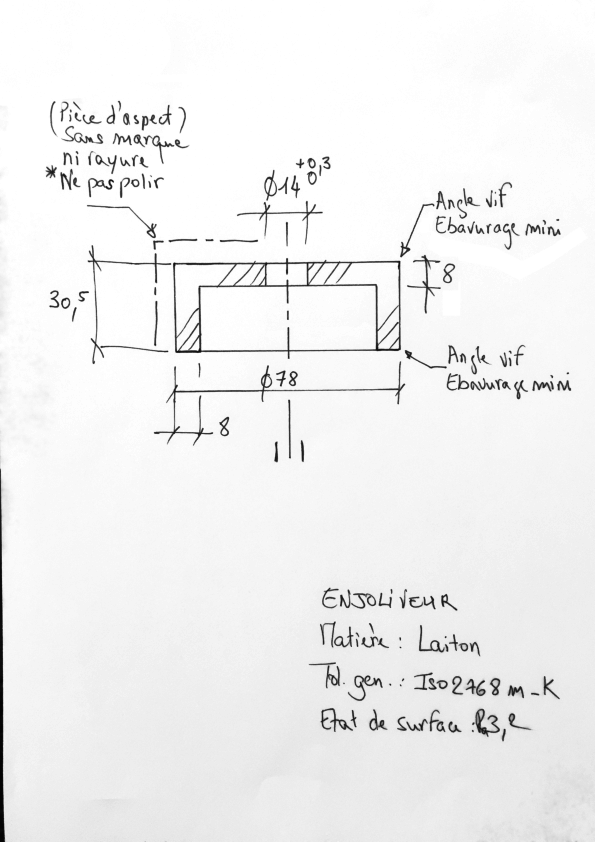 (Pièce d'aspect)
Sans marque
ni rayure
*Ne pas polir
Ø14 +0,3 0
Angle vif
Ebavurage mini
8
30,5
Angle vif
Ebavurage mini
Ø78
8
ENJOLIVEUR
Matière : Laiton
Tol. gen. : Iso 2768 m_K
Etat de surface : Ra3,2